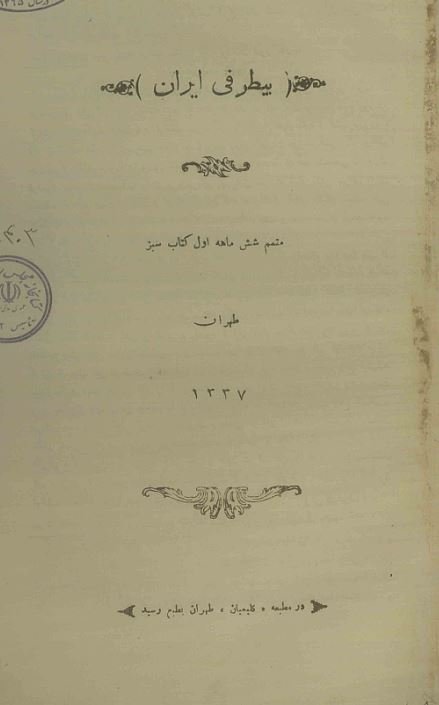 ( بیطرفی ایران )
متمم شش ماهه اول کتاب سبز
طهران
۱۳۳۷
در مطبعه « کلیمیان » طهران بطبع رسید